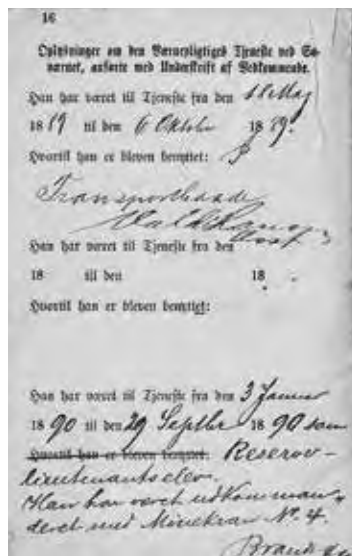 16
Oplysninger om den Værnepligtiges Tjeneste ved Sø-
værnet, anførte med Underskrift af Vedkommende.
Han har været til Tjeneste fra den 11 Maj
1889 til den 6 Oktbr 1889.
Hvortil han er bleven benyttet: I
Transportbaade
Han har været til Tjeneste fra den
18 til den 18 .
Hvortil han er bleven benyttet:
Han har været til Tjeneste fra den 3 Januar
1890 til den 29 Septbr 1890 som
Hvortil han er bleven benyttet: Reserve-
lieutenantselev.
Han har været udkomman-
deret med Minekran No. 4.